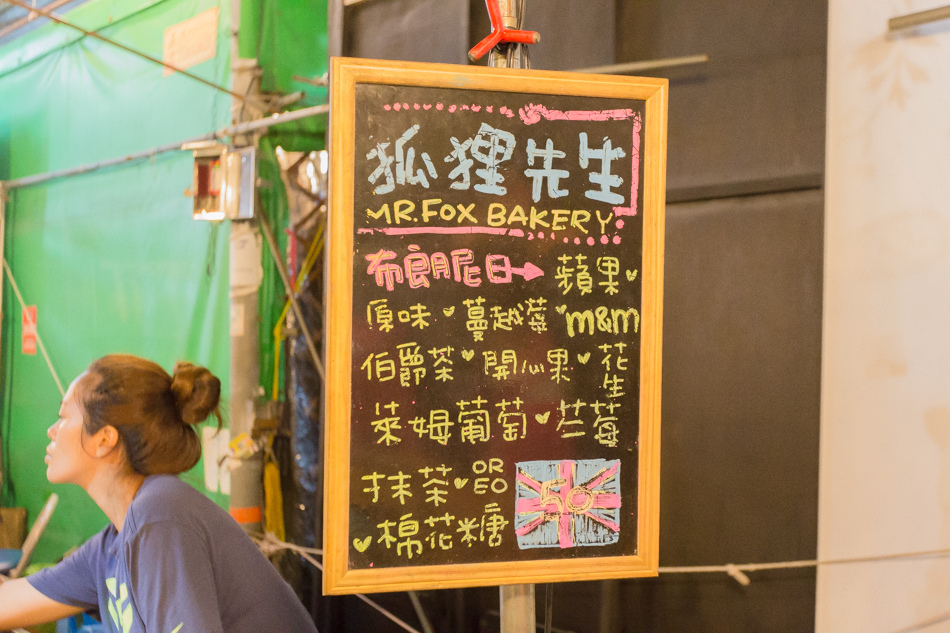 狐狸先生
MR.FOX BAKERY
布朗尼日→蘋果♥
原味♥蔓越莓♥m&m
伯爵茶♥開心果♥花生
萊姆葡萄♥芒莓
抹茶♥OREO
♥棉花糖
50